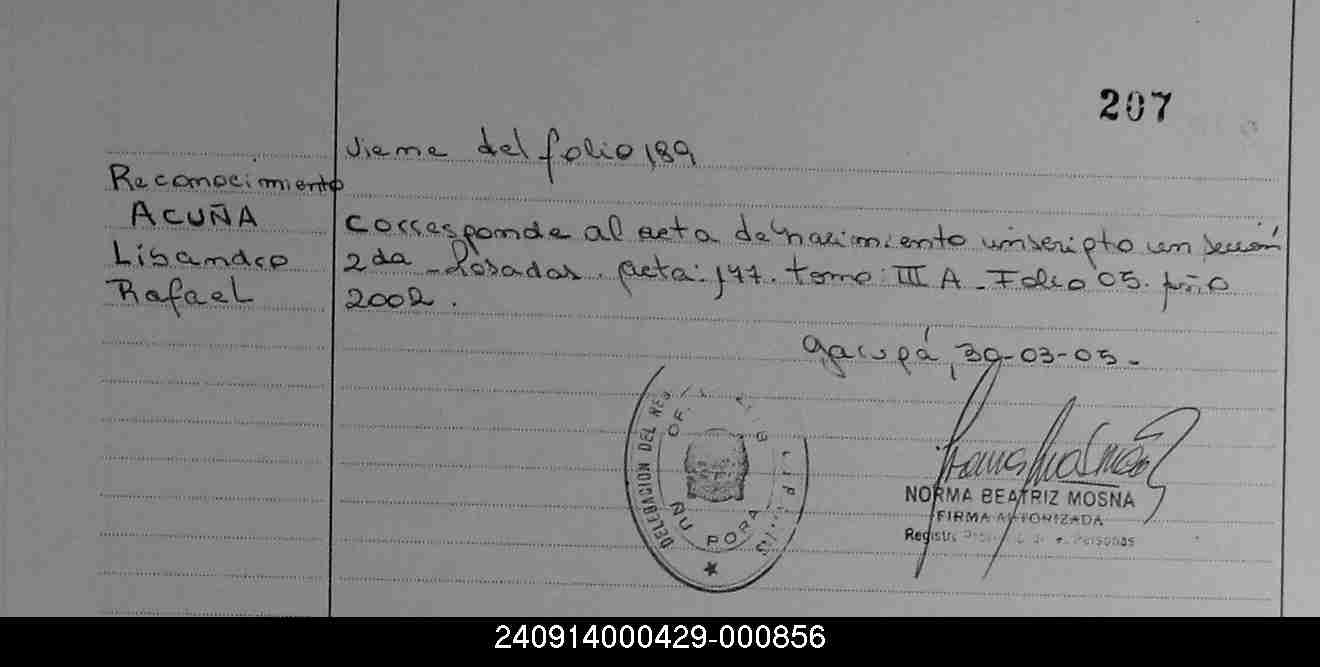 207
Viene del folio 189
Reconocimiento
ACUÑA
Lisandro
Rafael
Corresponde al acta de nacimiento inscripto en sección
2da - Posadas. Acta: 177. tomo: III A - Folio 05. Año
2002.
Garupá, 30-03-05-
DELEGACION DEL REG
OF.
ÑU PORA
NORMA BEATRIZ MOSNA
FIRMA AUTORIZADA
Personas
240914000429-000856